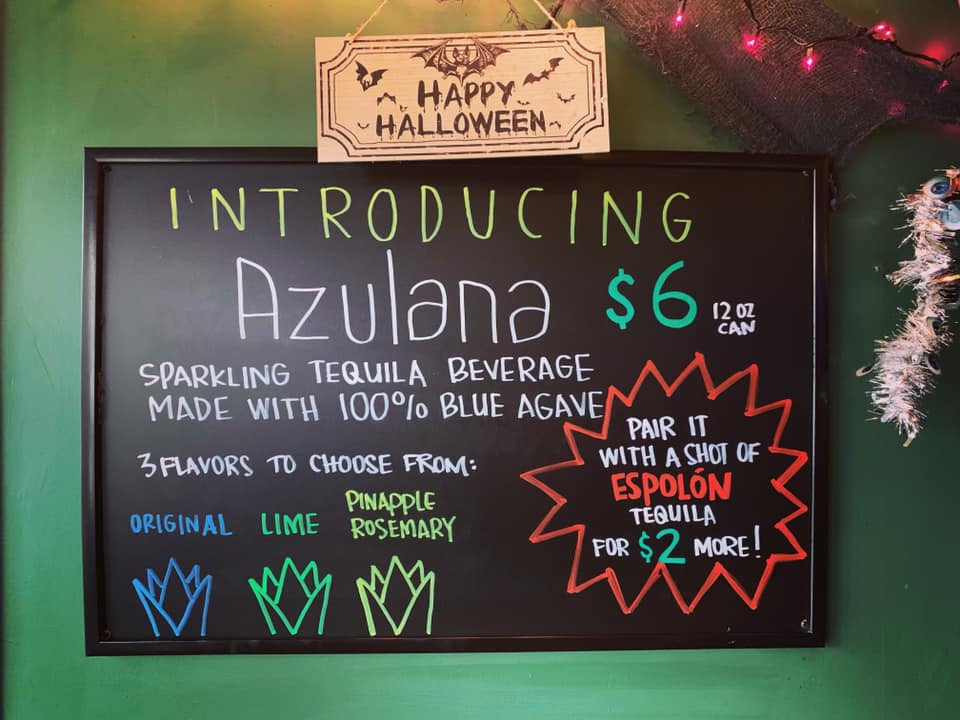 HAPPY
HALLOWEEN
INTRODUCING
Azulana $6 12 OZ
CAN
SPARKLING TEQUILA BEVERAGE
MADE WITH 100% BLUE AGAVE
3 FLAVORS TO CHOOSE FROM:
ORIGINAL
LIME
PINAPPLE
ROSEMARY
PAIR IT
WITH A SHOT OF
ESPOLÓN
TEQUILA
FOR $2 MORE!